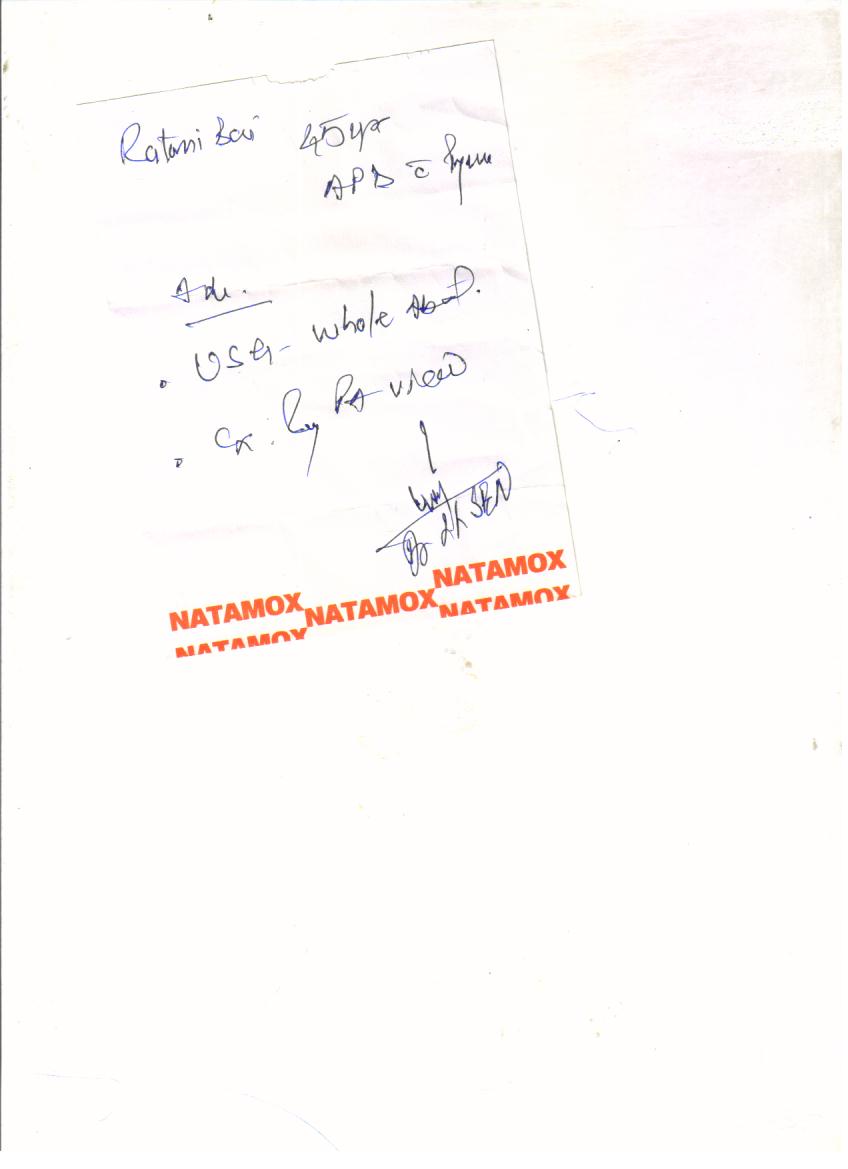 Ratani Bai 45 yr
APD c̄
Adv.
• USG - whole Abd.
• Cx. Ray PA view
Dr. J.K SEN
NATAMOX NATAMOX NATAMOX
NATAMOX NATAMOX